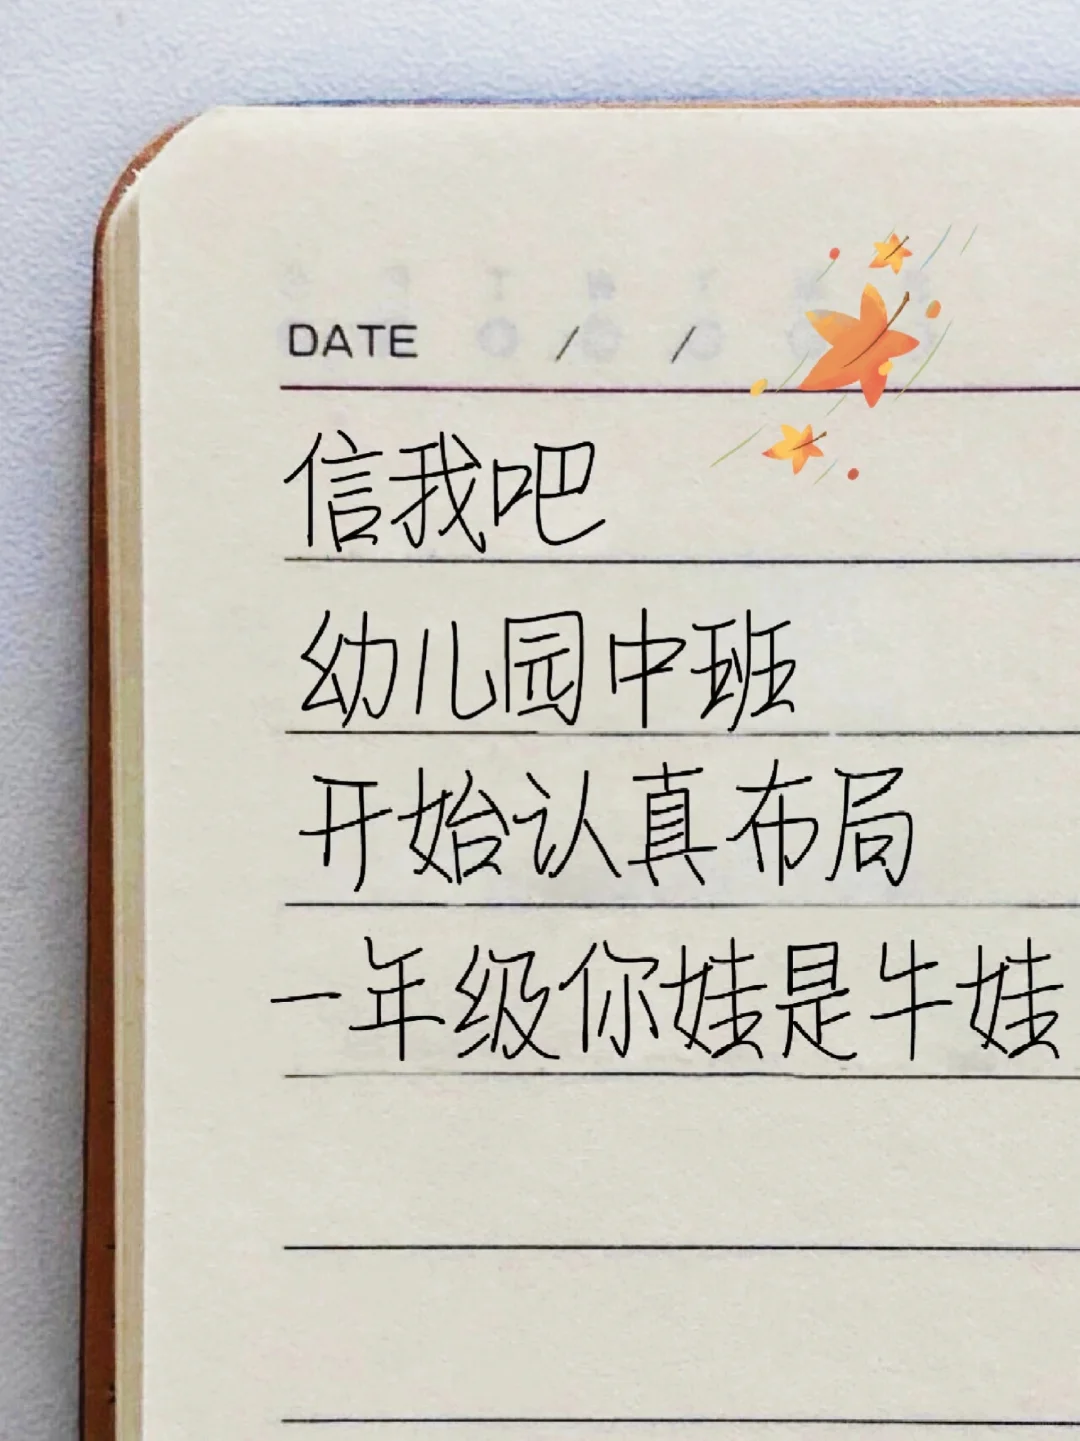 DATE / /
信我吧
幼儿园中班
开始认真布局
一年级你娃是牛娃